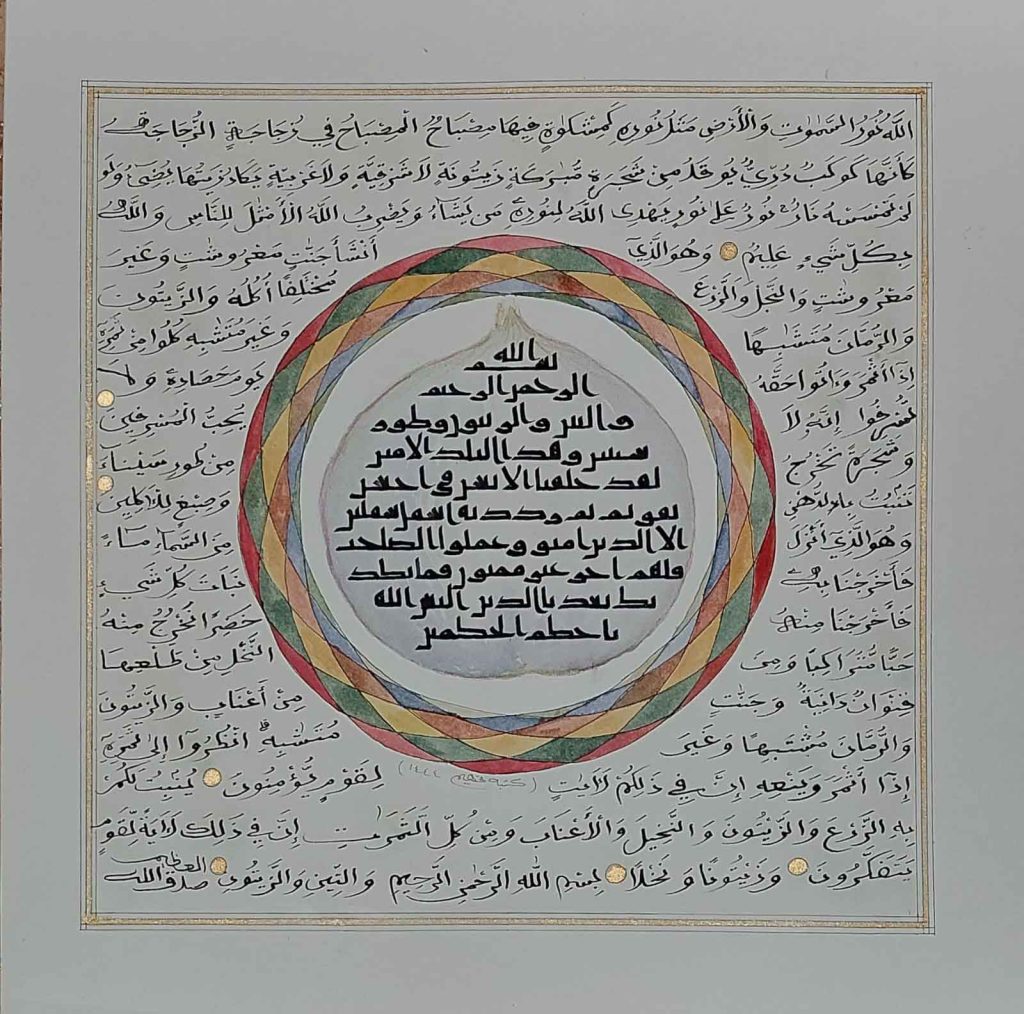 الله نور السموت والأرض مثل نوره كمشكوة فيها مصباح المصباح في زجاجة الزجاجة
كأنها كوكب دري يوقد من شجرة مبركة زيتونة لا شرقية ولا غربية يكاد زيتها يضيء ولو
لم تمسسه نار نور على نور يهدى الله لنوره من يشاء ويضرب الله الأمثل للناس والله
بكل شيء عليم وهو الذي أنشأ جنت معروشت وغير
معروشت والنخل والزرع مختلفا أكله والزيتون
والرمان متشبها وغير متشبه كلوا من ثمره
إذا أثمر وءاتوا حقه يوم حصاده ولا
تسرفوا إنه لا يحب المسرفين
وشجرة تخرج من طور سيناء
تنبت بالدهن وصبغ للأكلين
وهو الذي أنزل من السماء ماء
فأخرجنا به نبات كل شيء
فأخرجنا منه خضرا نخرج منه
حبا متراكبا ومن النخل من طلعها
قنوان دانية وجنت من أعناب والزيتون
والرمان مشتبها وغير متشبه انظروا إلى ثمره
إذا أثمر وينعه إن في ذلكم لأيت لقوم يؤمنون ينبت لكم
به الزرع والزيتون والنخيل والأعناب ومن كل الثمرت إن في ذلك لأية لقوم
يتفكرون وزيتونا ونخلا بسم الله الرحمن الرحيم والتين والزيتون صدق الله العظيم
بسم الله
الرحمن الرحيم
والتين والزيتون وطور
سينين وهذا البلد الامين
لقد خلقنا الانسن في احسن
تقويم ثم رددنه اسفل سفلين
الا الذين امنوا وعملوا الصلحت
فلهم اجر غير ممنون فما يكذ
بك بعد بالدين اليس الله
باحكم الحكمين
(كتبه ١٤٤٤)